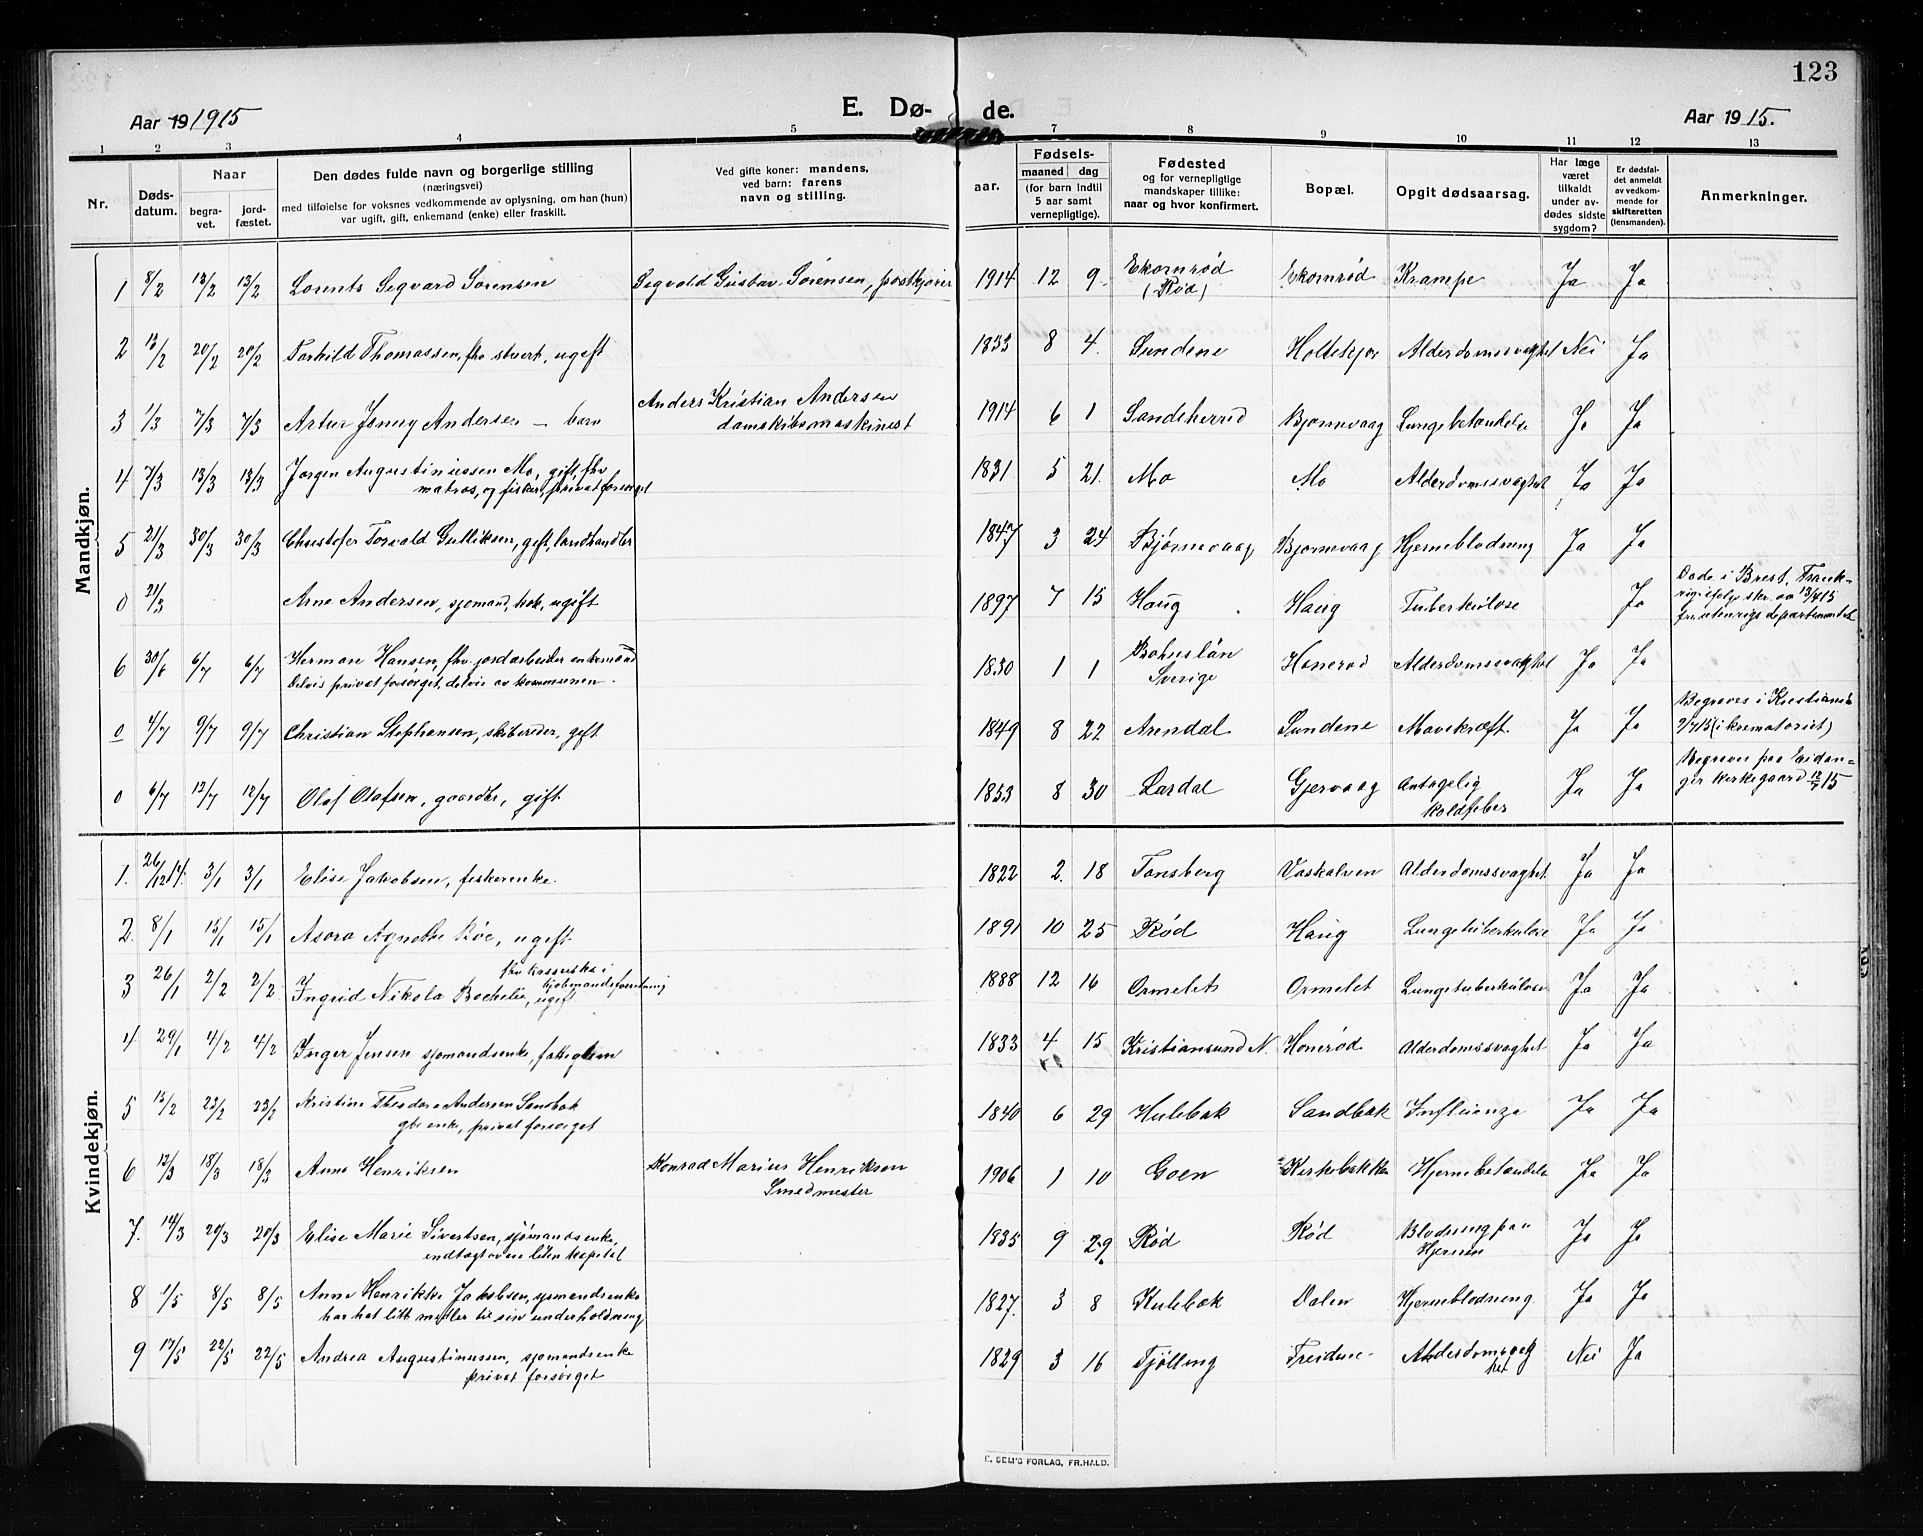 123
Aar 19 1915
E. Dø-
de.
Aar 1915.
1 2 3 4 5 7 8 9 10 11 12 13
Nr.
Døds-
datum.
Naar
begra-
vet.
jord-
fæstet.
Den dødes fulde navn og borgerlige stilling
(næringsvei)
med tilføielse for voksnes vedkommende av oplysning, om han (hun)
var ugift, gift, enkemand (enke) eller fraskilt.
Ved gifte koner: mandens,
ved barn: farens
navn og stilling.
aar.
Fødsels-
maaned dag
(for barn indtil
5 aar samt
vernepligtige).
Fødested
og for vernepligtige
mandskaper tillike:
naar og hvor konfirmert.
Bopæl.
Opgit dødsaarsag.
Har læge
været
tilkaldt
under av-
dødes sidste
sygdom?
Er dødsfal-
det anmeldt
av vedkom-
mende for
skifteretten
(lensmanden).
Anmerkninger.
Mandkjøn.
1 8/2 13/2 13/2 Lorents Segvard Sørensen Sigvald Gustav Sørensen, postkjører 1914 12 9 Ekornrød
(Rød) Ekornrød Krampe Ja Ja
2 13/2 20/2 20/2 Torkild Thomassen, fhv stuert, ugift 1833 8 4 Sundene Holtekjær Alderdomssvaghet Nei Ja
3 1/3 7/3 7/3 Artur Jenny Andersen – barn Anders Kristian Andersen
damskibsmaskinist 1914 6 1 Sandeherred Bjørnevaag Lungebetændelse Ja Ja
4 7/3 13/3 13/3 Jørgen Augustinussen Mo, gift, fhv
matros, og fisker, privat forsørget 1831 5 21 Mo Mo Alderdomssvaghet Ja Ja
5 21/3 30/3 30/3 Christofer Torvald Gulliksen, gift, landhandler 1847 3 24 Bjørnevaag Bjørnevaag Hjerneblødning Ja Ja
0 21/3 Arne Andersen, sjømand, kok, ugift 1897 7 15 Haug Haug Tuberkulose Ja Døde i Brest, Frank-
rig ifølge skr. av 13/4 15
fra utenrigsdepartementet
6 30/6 6/7 6/7 Herman Hansen, fhv. jordarbeider enkemand
Delvis privat forsørget, delvis av kommunen. 1830 1 1 Bohuslän
Sverige Hønerød Alderdomssvaghet Ja Ja
0 4/7 9/7 9/7 Christian Stephansen, skibsreder, gift 1849 8 22 Arendal Sundene Mavekræft Ja Ja Begraves i Kristiania
9/7 15 (i krematoriet)
0 6/7 12/7 12/7 Olaf Olafsen, gaardbr, gift 1853 8 30 Lardal Gjervaag Antagelig
koldfeber Ja Ja Begraves paa Eidan-
ger kirkegaard 12/7 15
Kvindekjøn.
1. 26/12 14. 3/1 3/1 Elise Jakobsen, fiskerenke 1822 2 18 Tønsberg Vaskalven Alderdomssvaghet Ja Ja
2. 8/1 15/1 15/1 Asora Agnethe Roe, ugift 1891 10 25 Rød Haug Lungetuberkulose Ja Ja
3 26/1 2/2 2/2 Ingrid Nikola Bochelie, ugift
fhv kasserske i
kjøbmandsforretning 1888 12 16 Ormelet Ormelet Lungetuberkulose Ja Ja
4 29/1 4/2 4/2 Inger Jensen sjømandsenke, fattiglem 1833 4 15 Kristiansund N. Hønerød Alderdomssvaghet Ja Ja
5 15/2 23/2 23/2 Kristine Theodora Andersen Sandbæk
gbr enke, privat forsørget 1840 6 29 Hulebak Sandbæk Influenza Ja Ja
6 12/3 18/3 18/3 Anna Henriksen Konrad Marius Henriksen
Smedmester 1906 1 10 Goen Kirkebakken Hjernebetændelse Ja Ja
7. 14/3 20/3 20/3 Elise Marie Sivertsen, sjømandsenke,
indtægt av en liten kapital 1835 9 29 Rød Rød Blødning paa
Hjernen Ja Ja
8 1/5 8/5 8/5 Anna Henrikke Jakobsen, sjømandsenke
har hat litt midler til sin underholdning 1827 3 8 Hulebak Dalen Hjerneblødning Ja Ja
9 17/5 22/5 22/5 Andrea Augustinussen, sjømandsenke
privat forsørget 1829 3 16 Tjølling Treidene Alderdomssvag
het Nei Ja
E. SEM'S FORLAG, FR.HALD.